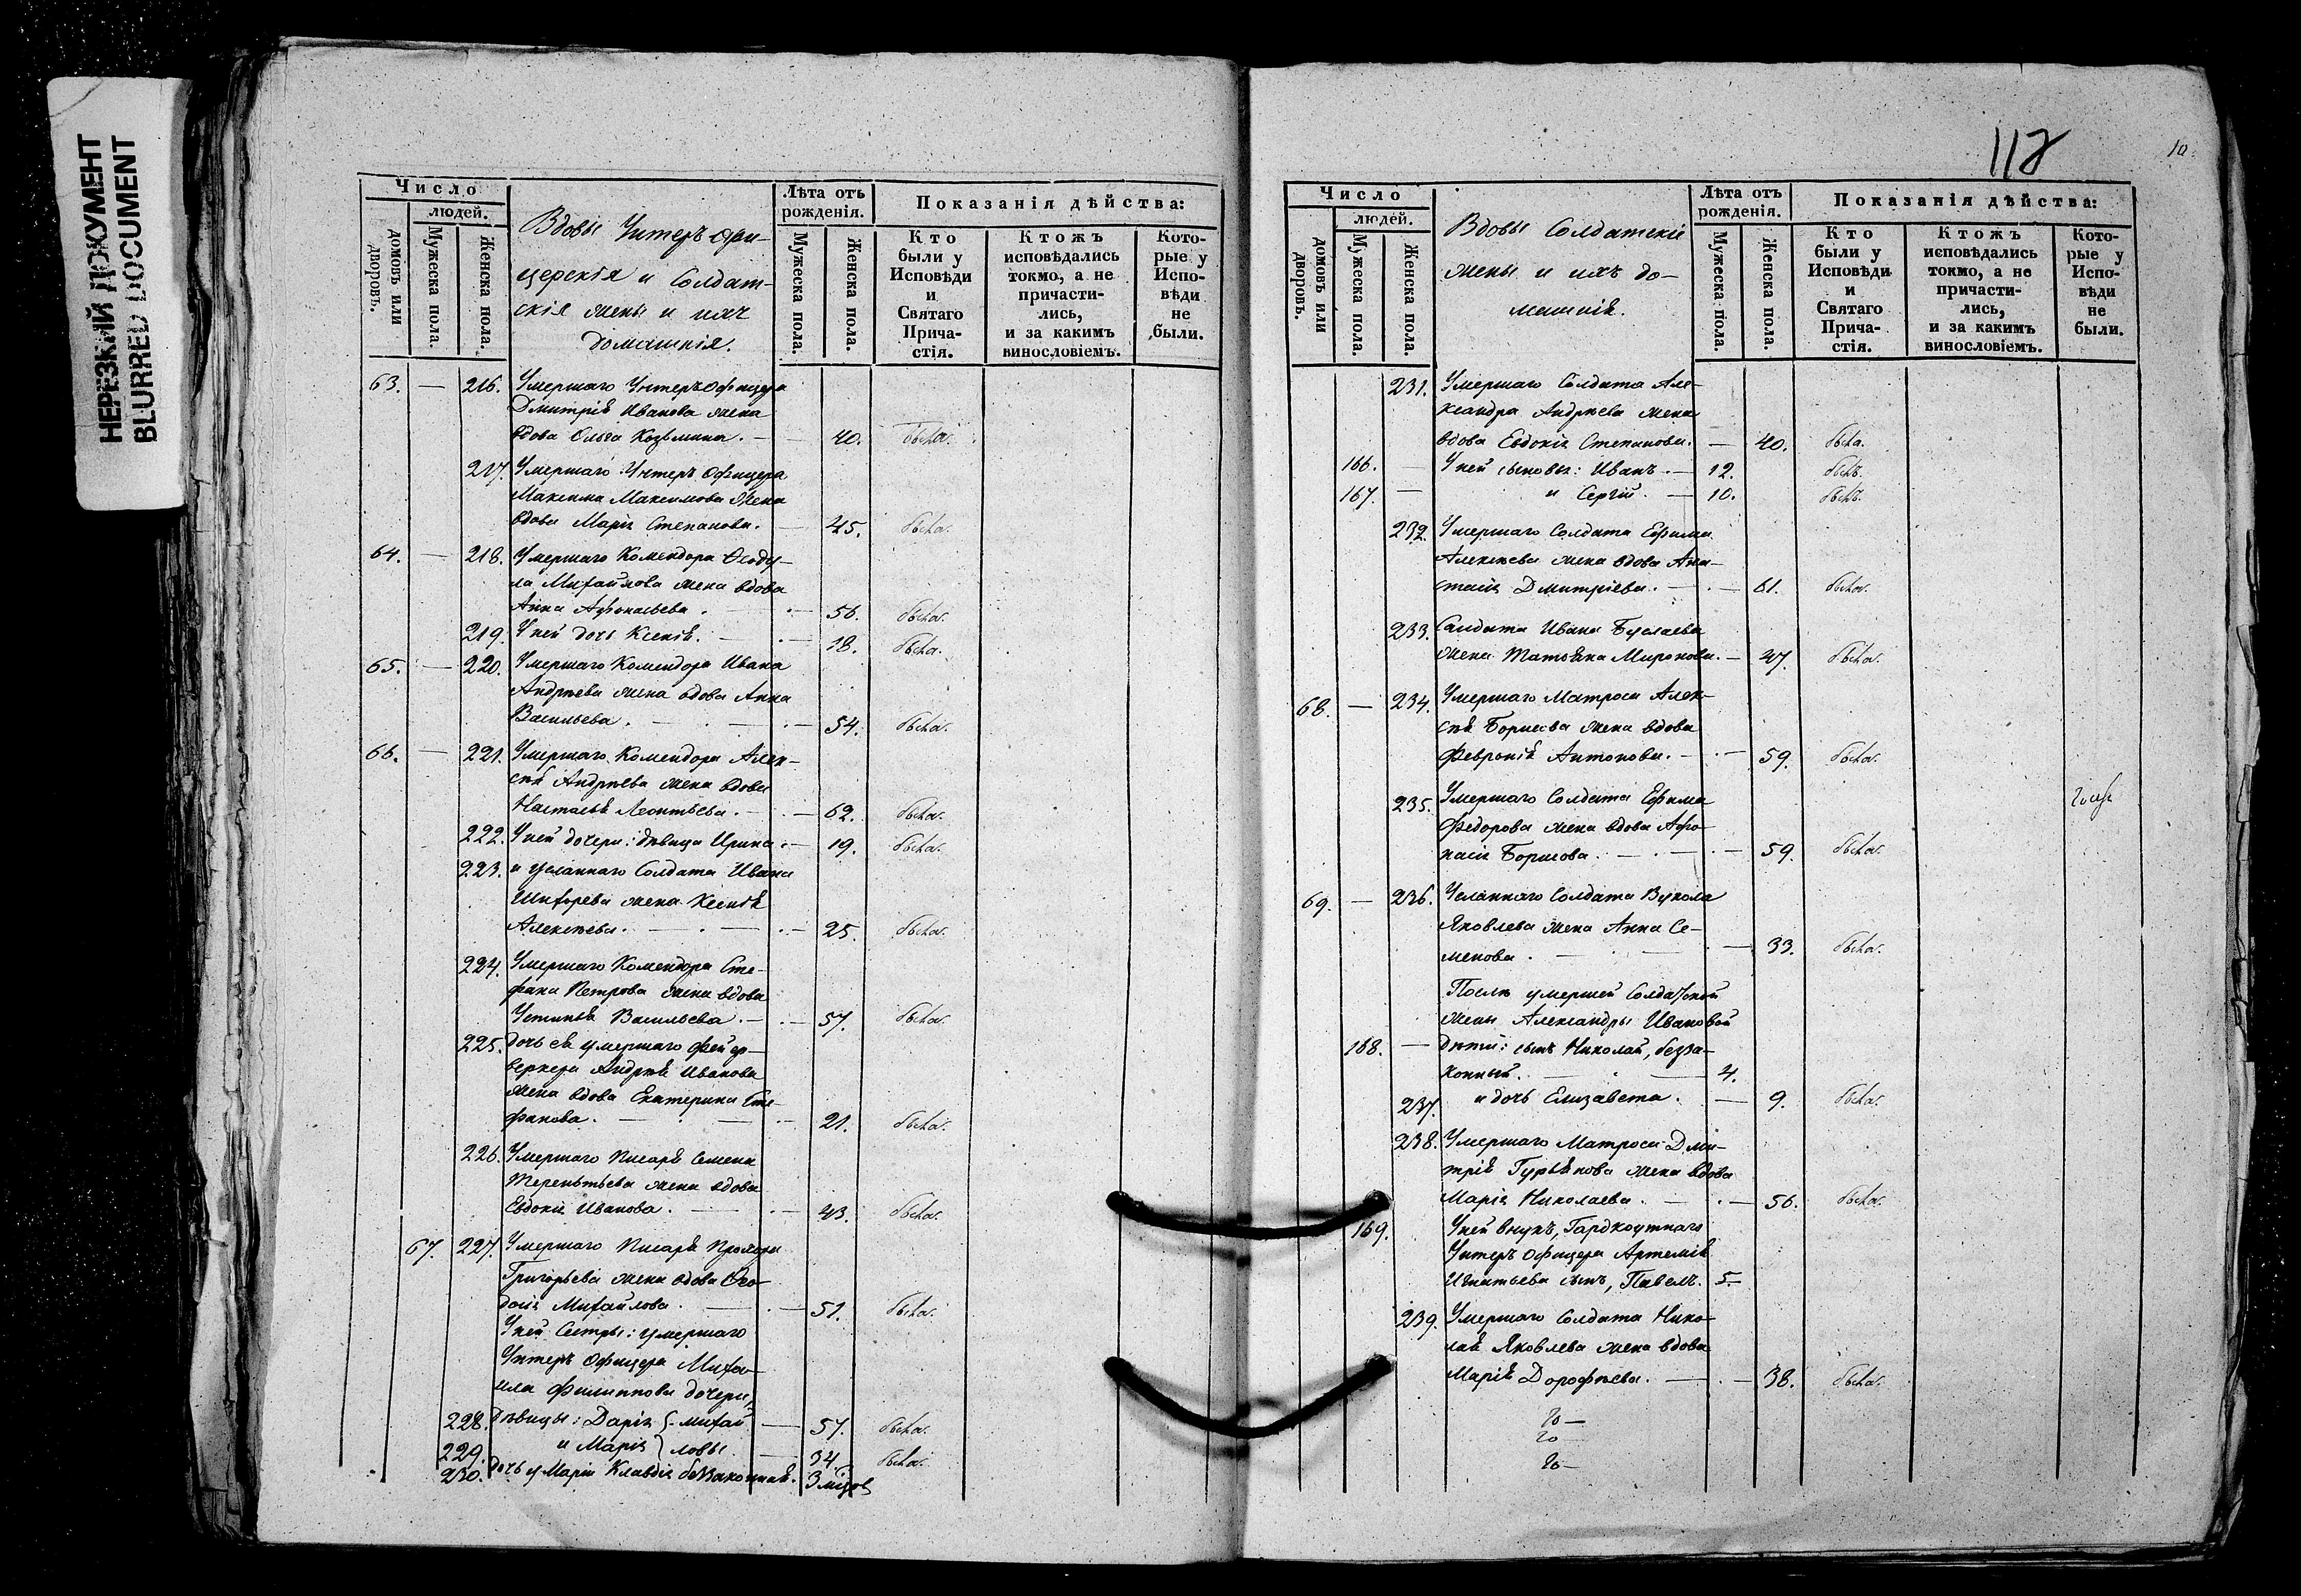 НЕРЕЗКИЙ ДОКУМЕНТ
BLURRED DOCUMENT
Число
людей.
домовъ или дворовъ.
Мужеска пола.
Женска пола.
Вдовы Унтеръ офи-
церскія и Солдат-
скія жены и ихъ
домашнія.
Лѣта отъ рожденія.
Мужеска пола.
Женска пола.
Показанія дѣйства:
Кто были у Исповѣди и Святаго Прича-стія.
Ктожъ исповѣдались токмо, а не причасти-лись, и за какимъ винословіемъ.
Кото-рые у Испо-вѣди не были.
63. — 216. Умершаго Унтеръ офицера
Дмитрія Иванова жена
вдова Ольга Козьмина. — 40. была.
217. Умершаго Унтеръ офицера
Максима Максимова жена
вдова Марія Степанова. — 45. была.
64. — 218. Умершаго Комендора Ѳеоду-
ла Михайлова жена вдова
Анна Афонасьева. — 56. была.
219. У ней дочь Ксенія. — 18. была.
65. — 220. Умершаго Комендора Ивана
Андрѣева жена вдова Анна
Васильева. — 54. была.
66. — 221. Умершаго Комендора Алек-
сѣя Андрѣева жена вдова
Настасья Леонтьева. — 62. была.
222. У ней дочери: дѣвица Ирина. — 19. была.
223. и усланнаго Солдата Ивана
жена Ксенія
Алексѣева. — 25. была.
224. Умершаго Комендора Сте-
фана Петрова жена вдова
Устинья Васильева. — 57. была.
225. дочь ея умершаго фейер-
веркера Андрѣя Иванова
жена вдова Екатерина Сте-
фанова. — 21. была.
226. Умершаго Писаря Семена
Терентьева жена вдова
Евдокія Иванова. — 43. была.
67. 227. Умершаго Писаря Прохора
Григорьева жена вдова Ѳео-
досія Михайлова. — 51. была.
У ней Сестры: умершаго
Унтеръ офицера Миха-
ила Филиппова дочери,
228. дѣвицы: Дарія } михай — 57. была.
229. и Марія } ловы. — 34. была.
230. дочь у Маріи Клавдія беззаконная. 3 мѣсяц
118
10
Число
людей.
домовъ или дворовъ.
Мужеска пола.
Женска пола.
Вдовы Солдатскіе
жены и ихъ до-
машніе.
Лѣта отъ рожденія.
Мужеска пола.
Женска пола.
Показанія дѣйства:
Кто были у Исповѣди и Святаго Прича-стія.
Ктожъ исповѣдались токмо, а не причасти-лись, и за какимъ винословіемъ.
Кото-рые у Испо-вѣди не были.
231. Умершаго Солдата Але-
ксандра Андрѣева жена
вдова Евдокія Степанова. — 40. была.
166. — У ней сыновья: Иванъ. — 12. былъ.
167. — и Сергій. — 10. былъ.
232. Умершаго Солдата Ефима
Алексѣева жена вдова Ана-
стасія Дмитріева. — 61. была.
233. Салдата Ивана Буслаева
жена Татьяна Миронова. — 47. была.
68. — 234. Умершаго Матроса Алек-
сѣя Борисова жена вдова
Февронія Антонова. — 59. была.
235. Умершаго Солдата Ефима
Федорова жена вдова Афо-
насія Борисова. — 59. была.
69. — 236. Усланнаго Солдата Вукола
Яковлева жена Анна Се-
менова. — 33. была.
Послѣ умершей Солдатской
жены Александры Ивановой
168. — дѣти: сынъ Николай, безза-
конный. — 4.
237. и дочь Елизавета. — 9. была.
238. Умершаго Матроса Дми-
трія Гурьянова жена вдова
Марія Николаева. — 56. была.
169. У ней внукъ, Гардкоутнаго
Унтеръ офицера Артемія
Игнатьева сынъ, Павелъ. 5. —
239. Умершаго Солдата Нико-
лая Яковлева жена вдова
Марія Дорофѣева. — 38. была.